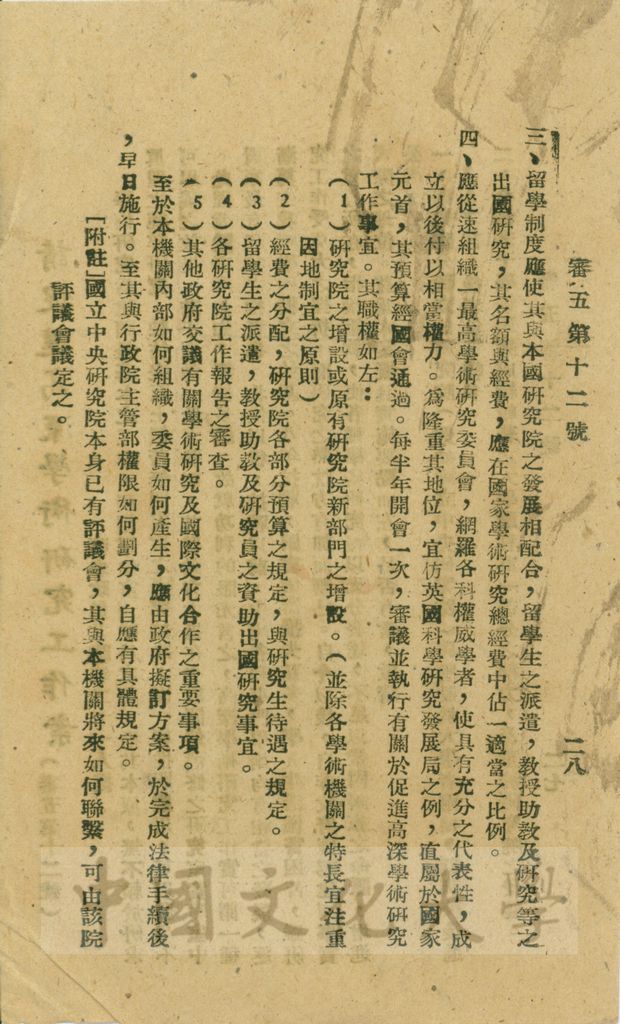 審五第十二號
二八
三、留學制度應使其與本國研究院之發展相配合，留學生之派遣，教授助教及研究等之
出國研究，其名額與經費，應在國家學術研究總經費中佔一適當之比例。
四、應從速組織一最高學術研究委員會，網羅各科權威學者，使具有充分之代表性，成
立以後付以相當權力。爲隆重其地位，宜仿英國科學研究發展局之例，直屬於國家
元首，其預算經國會通過。每半年開會一次，審議並執行有關於促進高深學術研究
工作事宜。其職權如左：
（1）研究院之增設或原有研究院新部門之增設。（並除各學術機關之特長宜注重
因地制宜之原則）
（2）經費之分配，研究院各部分預算之規定，與研究生待遇之規定。
（3）留學生之派遣，教授助教及研究員之資助出國研究事宜。
（4）各研究院工作報告之審查。
（5）其他政府交議有關學術研究及國際文化合作之重要事項。
至於本機關內部如何組織，委員如何產生，應由政府擬訂方案，於完成法律手續後
，早日施行。至其與行政院主管部權限如何劃分，自應有具體規定。
［附註］國立中央研究院本身已有評議會，其與本機關將來如何聯繫，可由該院
評議會議定之。
中國文化大學